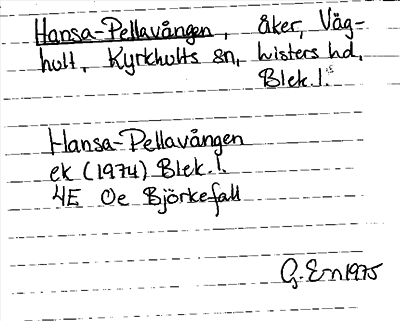 Hansa-Pellavången, åker, Våg-
hult, Kyrkhults sn, Listers hd,
Blek.l.
Hansa-Pellavången
ek (1974) Blek.l.
4E 0e Björkefall
G. Ern 1975